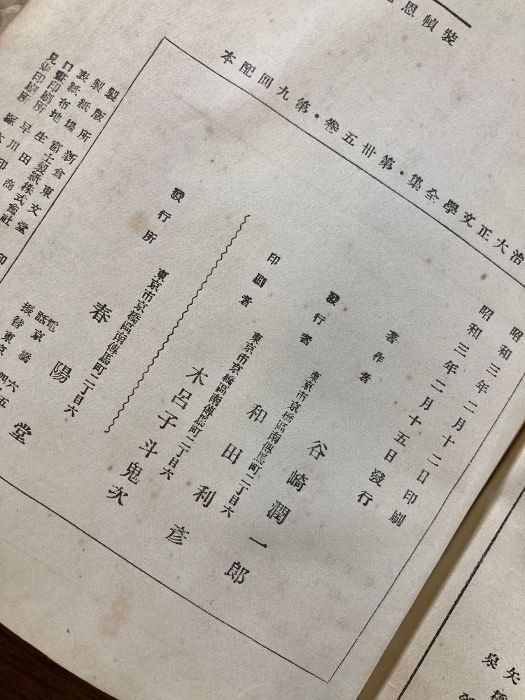 裝幀恩
治大正文學全集・第卅五卷・第九回配本
昭和三年二月十二日印刷
昭和三年二月十五日發行
著作者 谷崎潤一郎
東京市京橋區南傳馬町二丁目六
發行者 和田利彦
東京市京橋區南傳馬町二丁目六
印刷者 木呂子斗鬼次
東京市京橋區南傳馬町二丁目六
發行所 春陽堂
電話京橋
振替東京
製版所 新倉東文堂
製紙場 富士製紙株式會社
表紙布地
口繪印刷所
矢
橋
泉